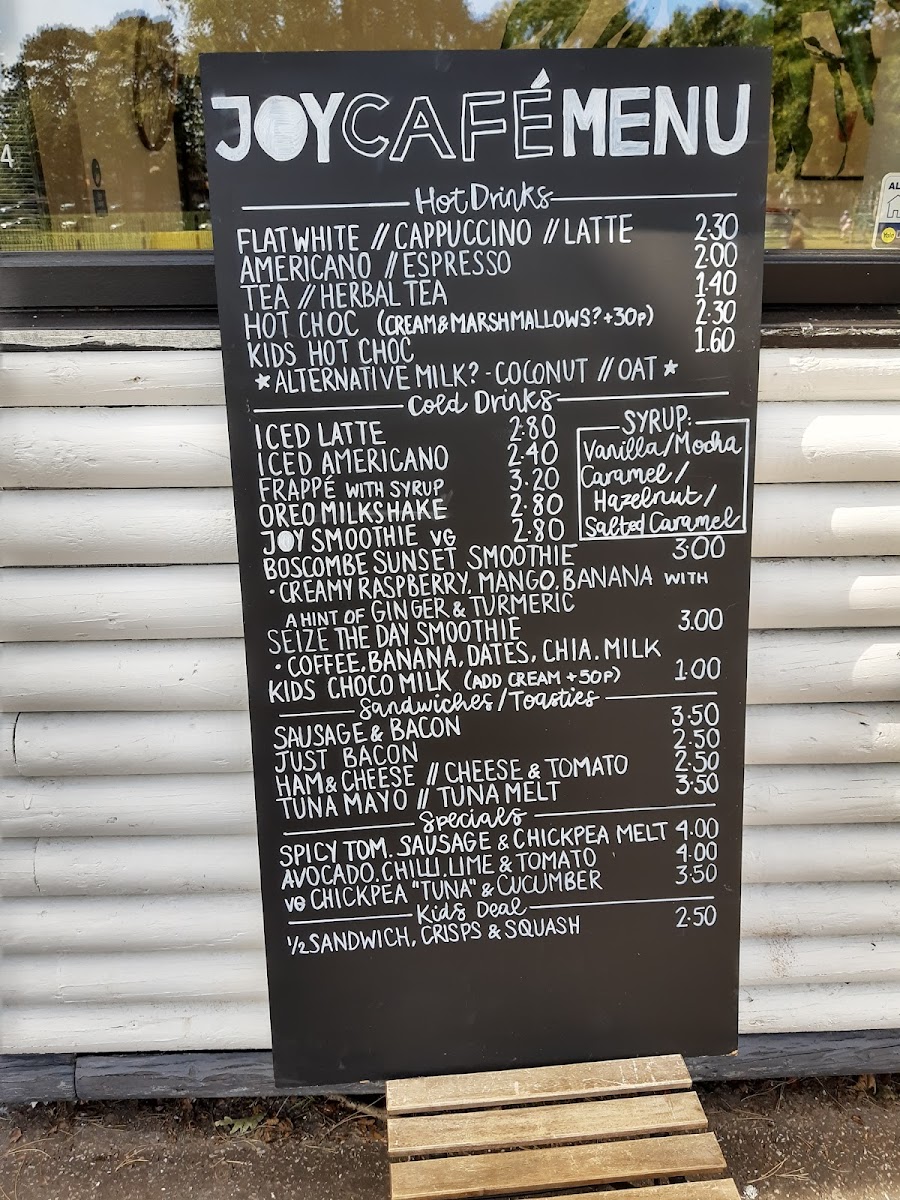 JOY CAFÉ MENU
Hot Drinks
FLAT WHITE // CAPPUCCINO // LATTE 2.30
AMERICANO // ESPRESSO 2.00
TEA // HERBAL TEA 1.40
HOT CHOC (CREAM & MARSHMALLOWS? +30P) 2.30
KIDS HOT CHOC 1.60
★ ALTERNATIVE MILK? - COCONUT // OAT ★
Cold Drinks
ICED LATTE 2.80
ICED AMERICANO 2.40
FRAPPÉ WITH SYRUP 3.20
OREO MILKSHAKE 2.80
JOY SMOOTHIE VG 2.80
SYRUP:
Vanilla/Mocha
Caramel/
Hazelnut/
Salted Caramel
BOSCOMBE SUNSET SMOOTHIE 3.00
• CREAMY RASPBERRY, MANGO, BANANA WITH
A HINT OF GINGER & TURMERIC
SEIZE THE DAY SMOOTHIE 3.00
• COFFEE, BANANA, DATES, CHIA, MILK
KIDS CHOCO MILK (ADD CREAM +50P) 1.00
Sandwiches/Toasties
SAUSAGE & BACON 3.50
JUST BACON 2.50
HAM & CHEESE // CHEESE & TOMATO 2.50
TUNA MAYO // TUNA MELT 3.50
Specials
SPICY TOM. SAUSAGE & CHICKPEA MELT 4.00
AVOCADO, CHILLI, LIME & TOMATO 4.00
VG CHICKPEA "TUNA" & CUCUMBER 3.50
Kids Deal
1/2 SANDWICH, CRISPS & SQUASH 2.50
4